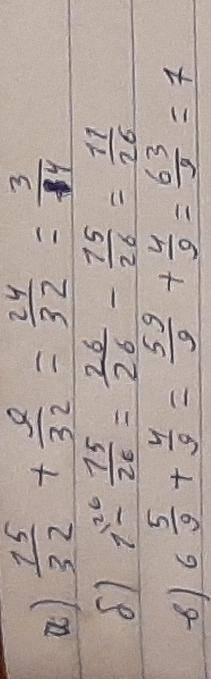 а) 15/32 + 9/32 = 24/32 = 3/4
б) 1²⁶ - 15/26 = 26/26 - 15/26 = 11/26
в) 6 5/9 + 4/9 = 59/9 + 4/9 = 63/9 = 7